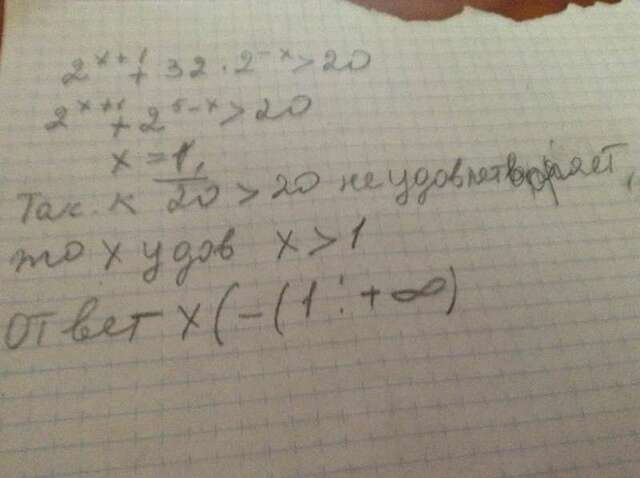 2^{x+1} + 32 · 2^{-x} > 20
2^{x+1} + 2^{5-x} > 20
x = 1,
Так. к 20 > 20 не удовлетворяет,
то x удов x > 1
Ответ x (-(1 ; + ∞)